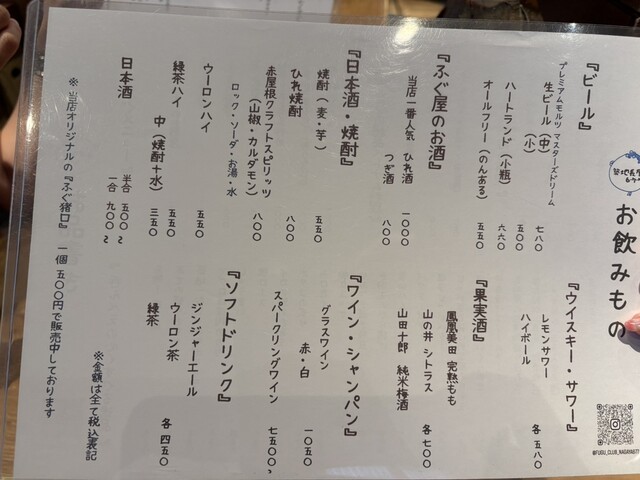 お飲みもの
『ビール』
プレミアムモルツ マスターズドリーム
生ビール (中) 七八〇
(小) 五〇〇
ハートランド (小瓶) 六六〇
オールフリー (のんある) 五五〇
『ふぐ屋のお酒』
当店一番人気 ひれ酒 一〇〇〇
つぎ酒 八〇〇
『日本酒・焼酎』
焼酎 (麦・芋) 五五〇
ひれ焼酎 八〇〇
赤屋根クラフトスピリッツ
(山椒・カルダモン) 八〇〇
ロック・ソーダ・お湯・水
ウーロンハイ 五五〇
緑茶ハイ 五五〇
中 (焼酎+水) 三五〇
日本酒 半合 五〇〇〜
一合 九〇〇〜
『ウイスキー・サワー』
レモンサワー
ハイボール
各 五八〇
『果実酒』
鳳凰美田 完熟もも
山の井 シトラス
山田十郎 純米梅酒
各 七〇〇
『ワイン・シャンパン』
グラスワイン
赤・白 一〇五〇
スパークリングワイン 七五〇〇〜
『ソフトドリンク』
ジンジャーエール
ウーロン茶
緑茶
各 四五〇
※金額は全て税込表記
※ 当店オリジナルの『ふぐ猪口』 一個 五〇〇円で販売中しております